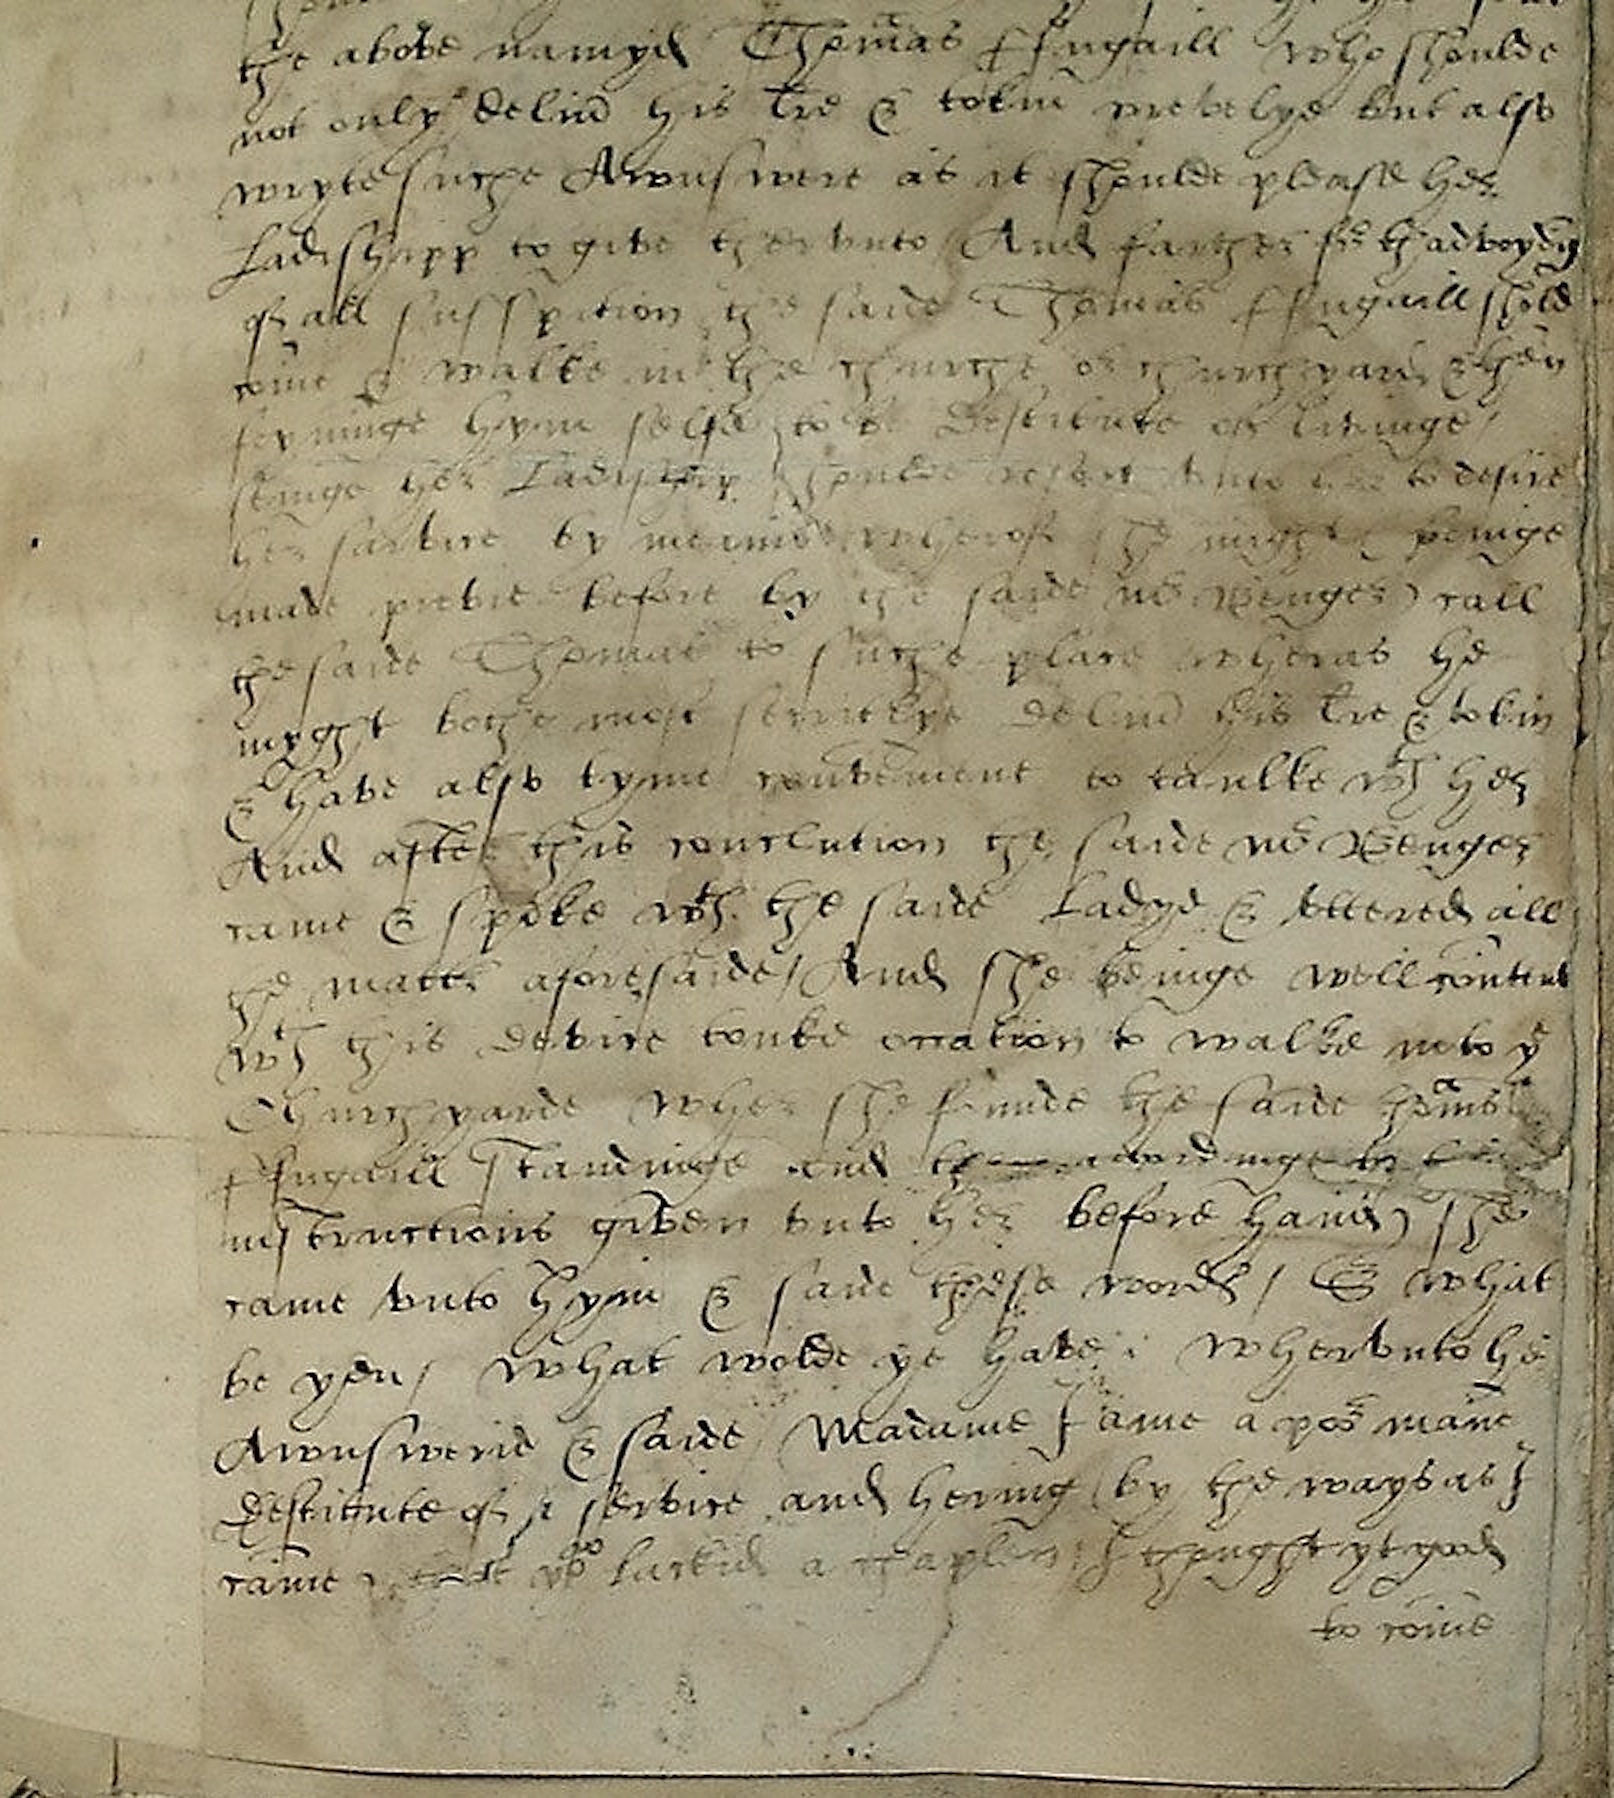 the above namyd Thomas ffugaill who shoulde
not only deliu' his lre & tokin prevelye but also
wryte suche Awnswere as it shoulde please her
Ladishipp to give thervnto And farther for thadvoydyng
of all susspition the saide Thomas ffugaill shold
come & walke in the churche or churchyard & then
feyninge hym selfe to be destitute of livinge /
seinge her Ladishipp shoulde resort vnto her to desire
her service by meanes wherof she might (beinge
made previe before by the saide mr Wenger) call
the saide Thomas to suche place wheras he
myght bothe most secretlye deliu' his lre & tokin
& have also tyme convenient to taulke wth her
And after this conclution the saide mr Wenger
came & spoke wth the saide Ladye & vttered all
the matter aforesaide / And she beinge well content
wth this devise touke occation to walke into ye
Churchyarde wher she founde the saide Thomas
ffugaill standinge and accordinge to
instructions given vnto her before hand) she
came vnto hym & said these words / & what
be you / what wolde ye have : Whervnto he
Awnswerid & saide Madame I ame a por mane
destitute of a service and hering (by the ways as I
came yo lackid a chaplen I thought yt good
to come